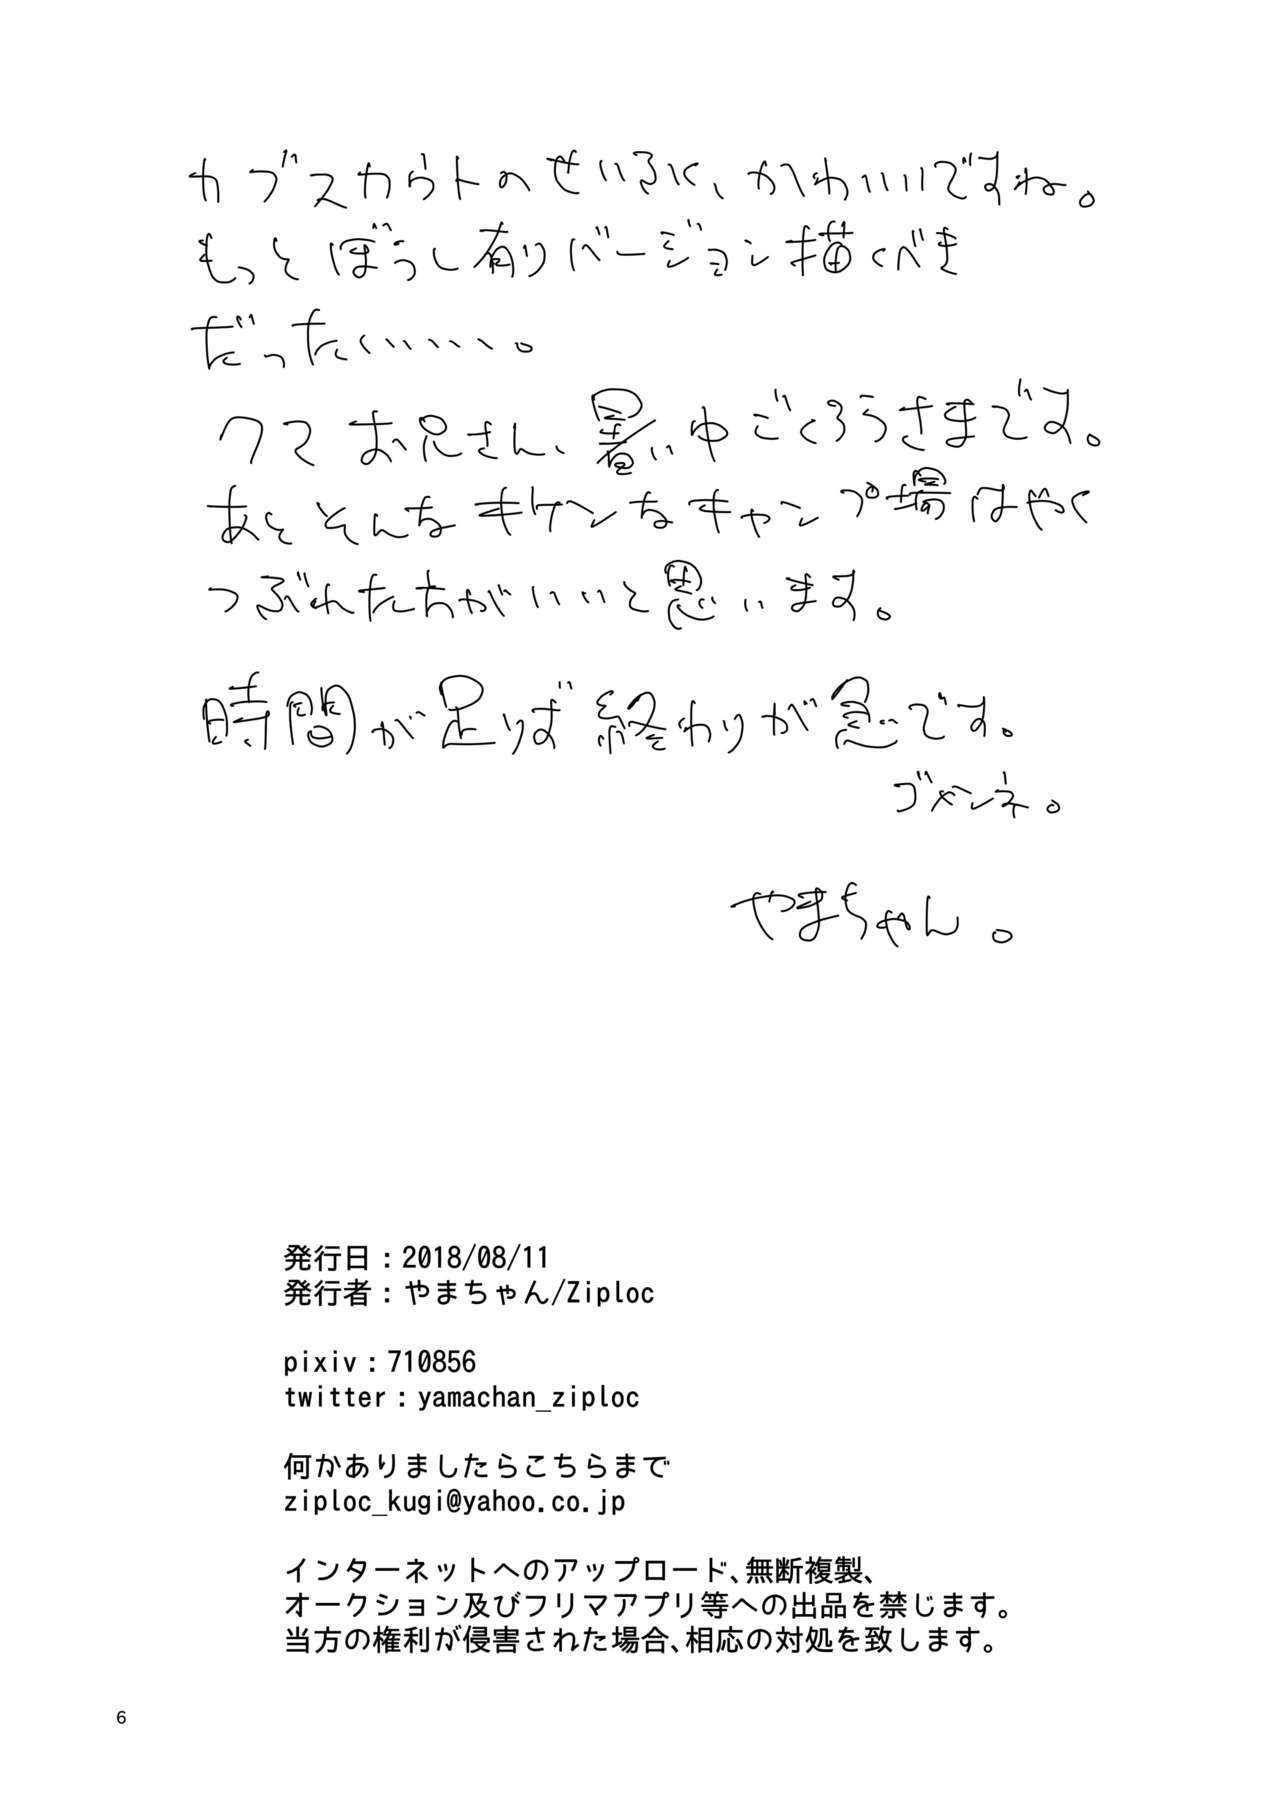 カブスカウトのせいふく、かわいいですね。
もっとぼうし有りバージョン描くべき
だったく、、、、、。
クマお兄さん、暑い中ごくろうさまです。
あとそんなキケンなキャンプ場はやく
つぶれた方がいいと思います。
時間が足りず終わりが急です。
ゴメンネ。
やまちゃん。
発行日：2018/08/11
発行者：やまちゃん/Ziploc
pixiv：710856
twitter：yamachan_ziploc
何かありましたらこちらまで
ziploc_kugi@yahoo.co.jp
インターネットへのアップロード、無断複製、
オークション及びフリマアプリ等への出品を禁じます。
当方の権利が侵害された場合、相応の対処を致します。
6